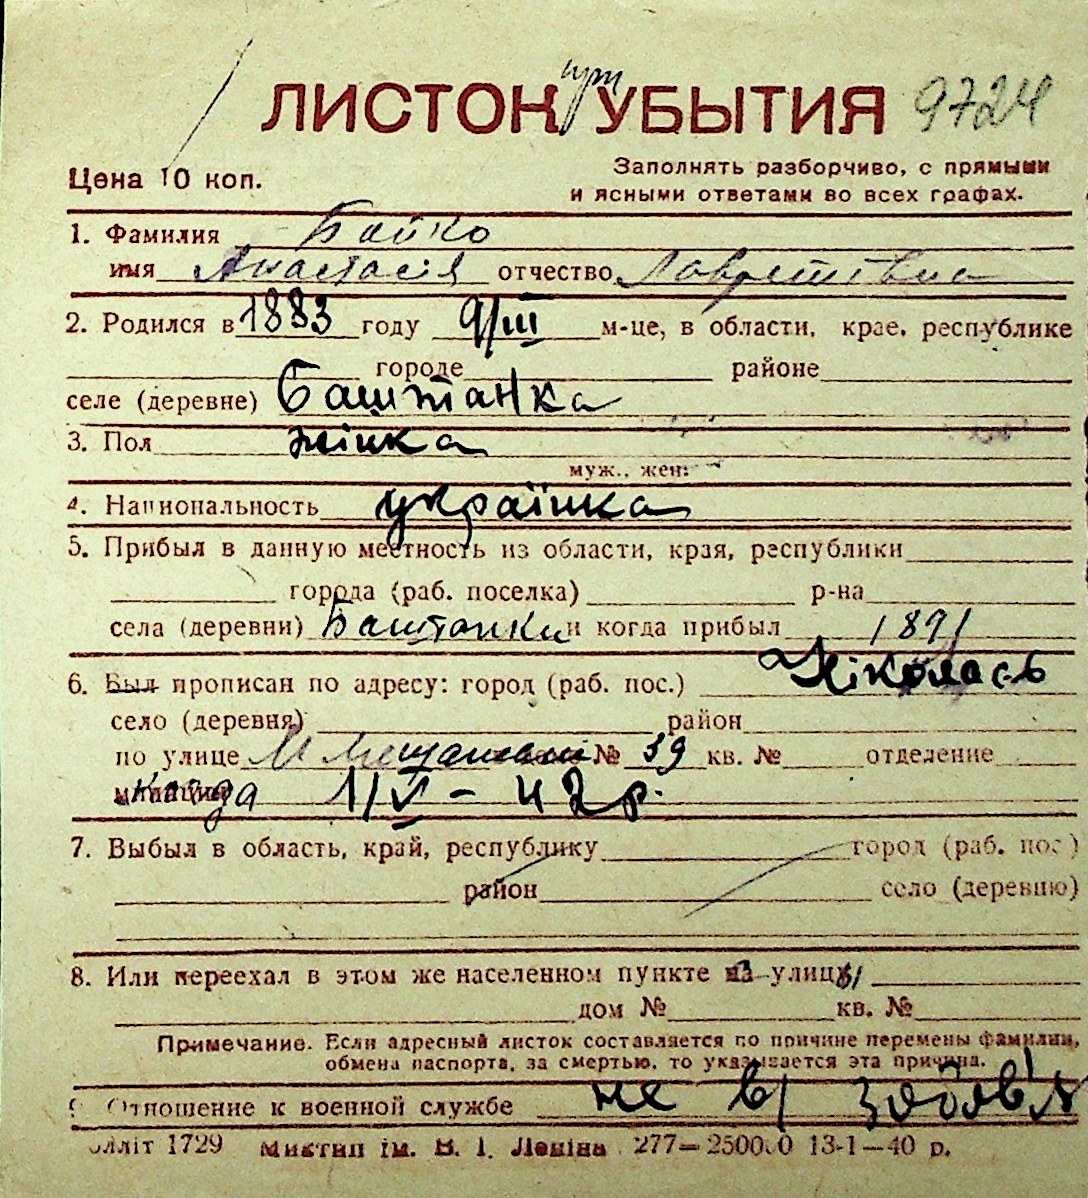 при
ЛИСТОК УБЫТИЯ 9724
Цена 10 коп.
Заполнять разборчиво, с прямыми
и ясными ответами во всех графах.
1. Фамилия Бойко
имя Анастасія отчество
2. Родился в 1883 году 9/III м-це, в области, крае, республике
городе районе
селе (деревне) Баштанка
3. Пол жінка
муж., жен.
4. Национальность українка
5. Прибыл в данную местность из области, края, республики
города (раб. поселка) р-на
села (деревни) Баштанки и когда прибыл 1891
6. Был прописан по адресу: город (раб. пос.) Ніколаєв
село (деревня) район
по улице № 39 кв. № отделение
милиции когда 1/V – 42 р.
7. Выбыл в область, край, республику город (раб. пос.)
район село (деревню)
8. Или переехал в этом же населенном пункте из улицы
дом № кв. №
Примечание. Если адресный листок составляется по причине перемены фамилии,
обмена паспорта, за смертью, то указывается эта причина.
9. Отношение к военной службе не в/ зобов'я
олліт 1729 Миктип ім. В. І. Леніна 277—250000 13-1—40 р.